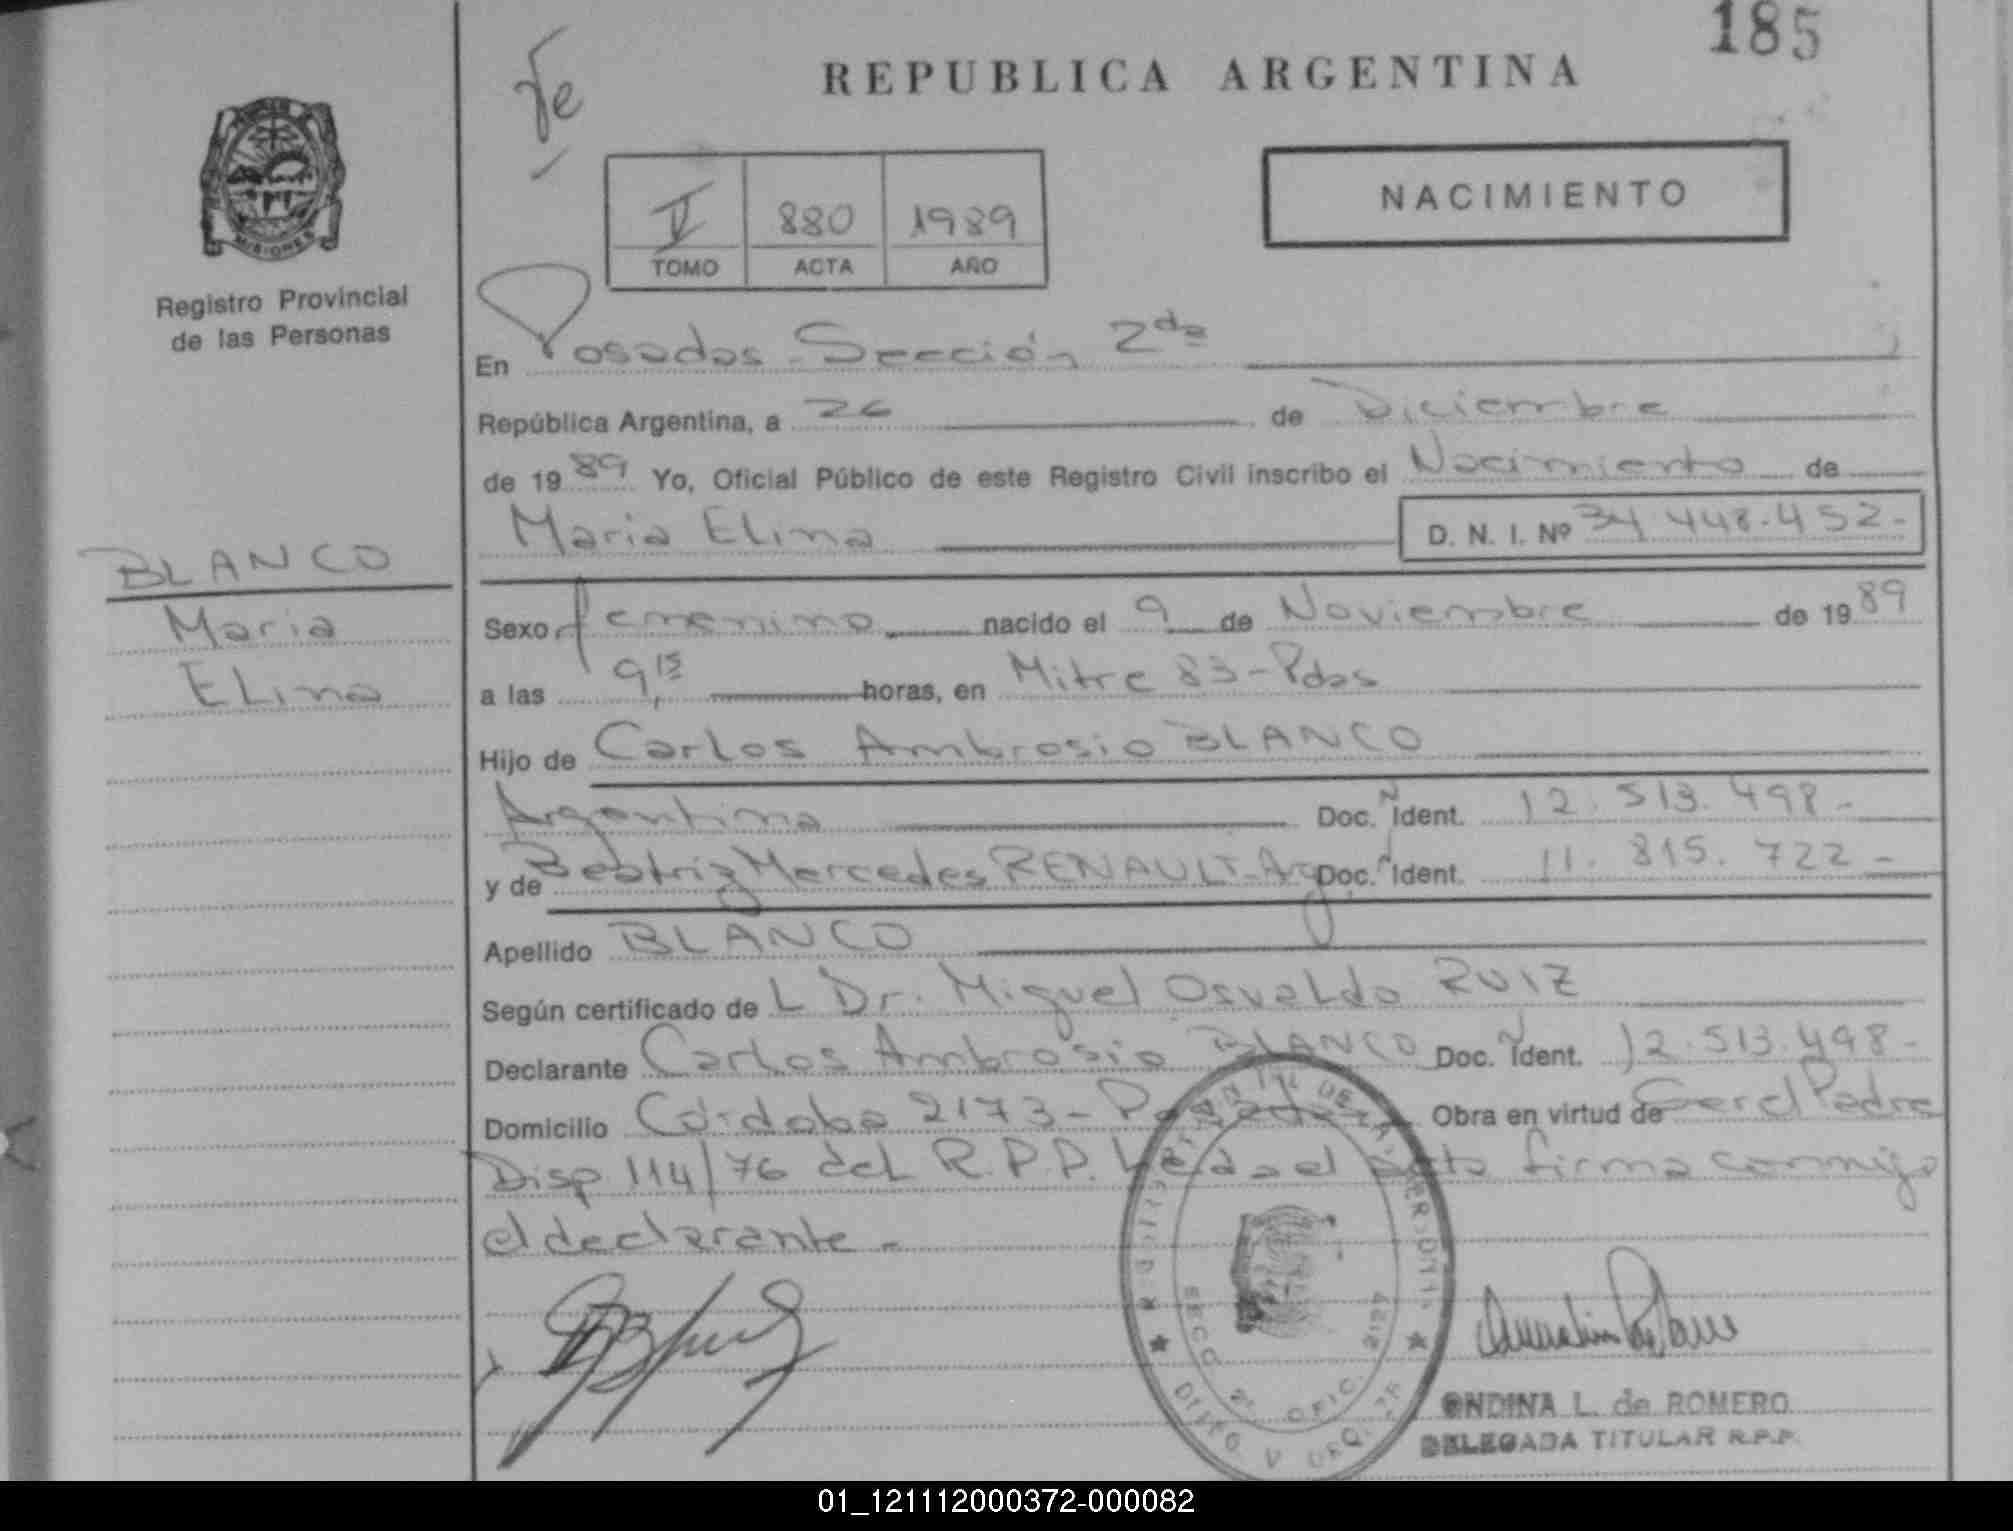 185
Fe
REPUBLICA ARGENTINA
NACIMIENTO
V 880 1989
TOMO ACTA AÑO
MISIONES
Registro Provincial
de las Personas
En Posadas - Sección 2da
República Argentina, a 26 de Diciembre
de 19 89 Yo, Oficial Público de este Registro Civil inscribo el Nacimiento de
Maria Elina D. N. I. Nº 34.448.452-
BLANCO
Maria
Elina
Sexo femenino nacido el 9 de Noviembre de 19 89
a las 9,15 horas, en Mitre 83 - Pdas
Hijo de Carlos Ambrosio BLANCO
Argentina Doc. Ident. 12.513.498-
y de Beatriz Mercedes RENAULT - Arg. Doc. Ident. 11.815.722-
Apellido BLANCO
Según certificado de L Dr. Miguel Osvaldo RUIZ
Declarante Carlos Ambrosio BLANCO Doc. Ident. 12.513.498-
Domicilio Córdoba 2173 - Posadas Obra en virtud de Ser el Padre
Disp. 114/76 del R.P.P. Leida el acta firma conmigo
el declarante -
SECC. 2ª OFIC. 2127
ONDINA L. de ROMERO
DELEGADA TITULAR R.P.P.
01_121112000372-000082